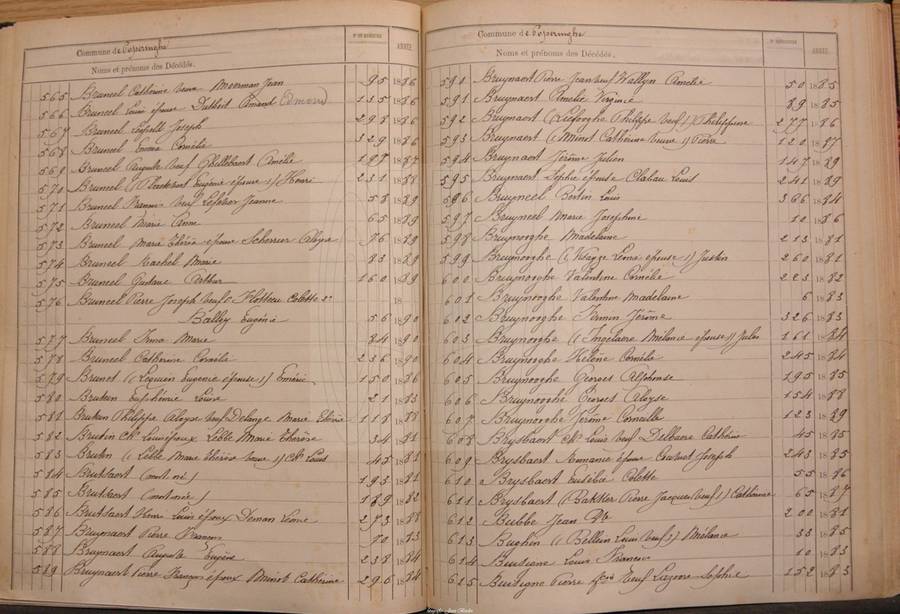 Commune de Poperinghe
Nos DES REGISTRES
ANNÉE
Noms et prénoms des Décédés.
565 Bruneel Catherine veuve Moerman Jean 95 1886
566 Bruneel Louis épouse Dutoit Amand Edmond 135 1886
567 Bruneel Joseph 298 1886
568 Bruneel Emma Cornélie 329 1886
569 Bruneel Auguste veuf Ghillebaert Amélie 197 1887
570 Bruneel ( Eugénie épouse ) Henri 231 1888
571 Bruneel Francis veuf Jeanne 58 1889
572 Bruneel Marie Anne 65 1889
573 Bruneel Marie Thérèse épouse Scherrier Aloyse 76 1889
574 Bruneel Rachel Marie 83 1889
575 Bruneel Gustave Arthur 160 1889
576 Bruneel Pierre Joseph veuf Colette et 18
Bailley Eugénie 56 1890
577 Bruneel Irma Marie 84 1890
578 Bruneel Catherine Coralie 236 1890
579 Brunet ( Lequien Eugenie épouse ) Emérie 150 1886
580 Bruken Euphémie Louise 21 1883
581 Bruken Philippe Aloyse veuf Delange Marie 118 1888
582 Brutin Ch. Louis époux Leble Marie Thérèse 34 1881
583 Brutin ( Leble Marie Thérèse veuve ) Ch. Louis 45 1881
584 Brutsaert (mort né) 193 1881
585 Brutsaert (mort née) 189 1882
586 Brutsaert Henri Louis époux Deman Léonie 273 1888
587 Bruynaert Pierre Francis 70 1883
588 Bruynaert Auguste Eugène 238 1884
589 Bruynaert Pierre François époux Minot Catherine 296 1884
Commune de Poperinghe
Nos DES REGISTRES
ANNÉE
Noms et prénoms des Décédés.
590 Bruynaert Pierre Jean veuf Wallyn Amélie 50 1885
591 Bruynaert Amélie Virginie 89 1885
592 Bruynaert (Liefooghe Philippe veuf) Philippine 277 1886
593 Bruynaert (Minot Catherine veuve) Pierre 120 1887
594 Bruynaert Jérôme Julien 147 1889
595 Bruynaert Sophie épouse Clabau Louis 241 1889
596 Bruyneel Bertin Louis 366 1884
597 Bruyneel Marie Josephine 10 1886
598 Bruynooghe Madelaine 213 1881
599 Bruynooghe ( Léonie épouse ) Justin 260 1881
600 Bruynooghe Valentine Cornélie 223 1882
601 Bruynooghe Valentine Madelaine 6 1883
602 Bruynooghe Firmin Jérôme 326 1883
603 Bruynooghe ( Ingelaere Mélanie épouse ) Jules 161 1884
604 Bruynooghe Hélène Cornélie 245 1884
605 Bruynooghe Georges Alphonse 195 1885
606 Bruynooghe Georges Aloyse 154 1888
607 Bruynooghe Jérôme Corneille 123 1889
608 Brysbaert Ch. Louis veuf Delbaere Cathérine 45 1885
609 Brysbaert Amanie épouse Joseph 243 1885
610 Brysbaert Eusébie Colette 55 1886
611 Brysbaert (Bakker Pierre Jacques veuf) Catherine 65 1887
612 Bubbe Jean Bte 200 1881
613 Buchin ( Bellein Louis veuf ) Mélanie 33 1885
614 Budiane Louis Francis 10 1883
615 Pierre veuf Lagore Sophie 152 1883